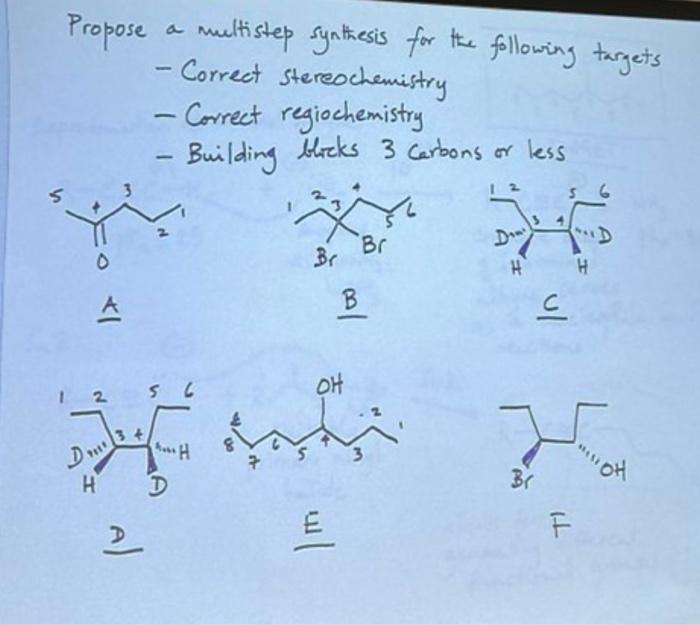 Propose a multistep synthesis for the following targets
- Correct stereochemistry
- Correct regiochemistry
- Building blocks 3 Carbons or less
5 4 3 2 1
O
A
1 2 3 4 5 6
Br Br
B
1 2 5 6
D 3 4 D
H H
C
1 2 5 6
D 3 4 H
H D
D
OH
8 7 6 5 4 3 2 1
E
Br OH
F